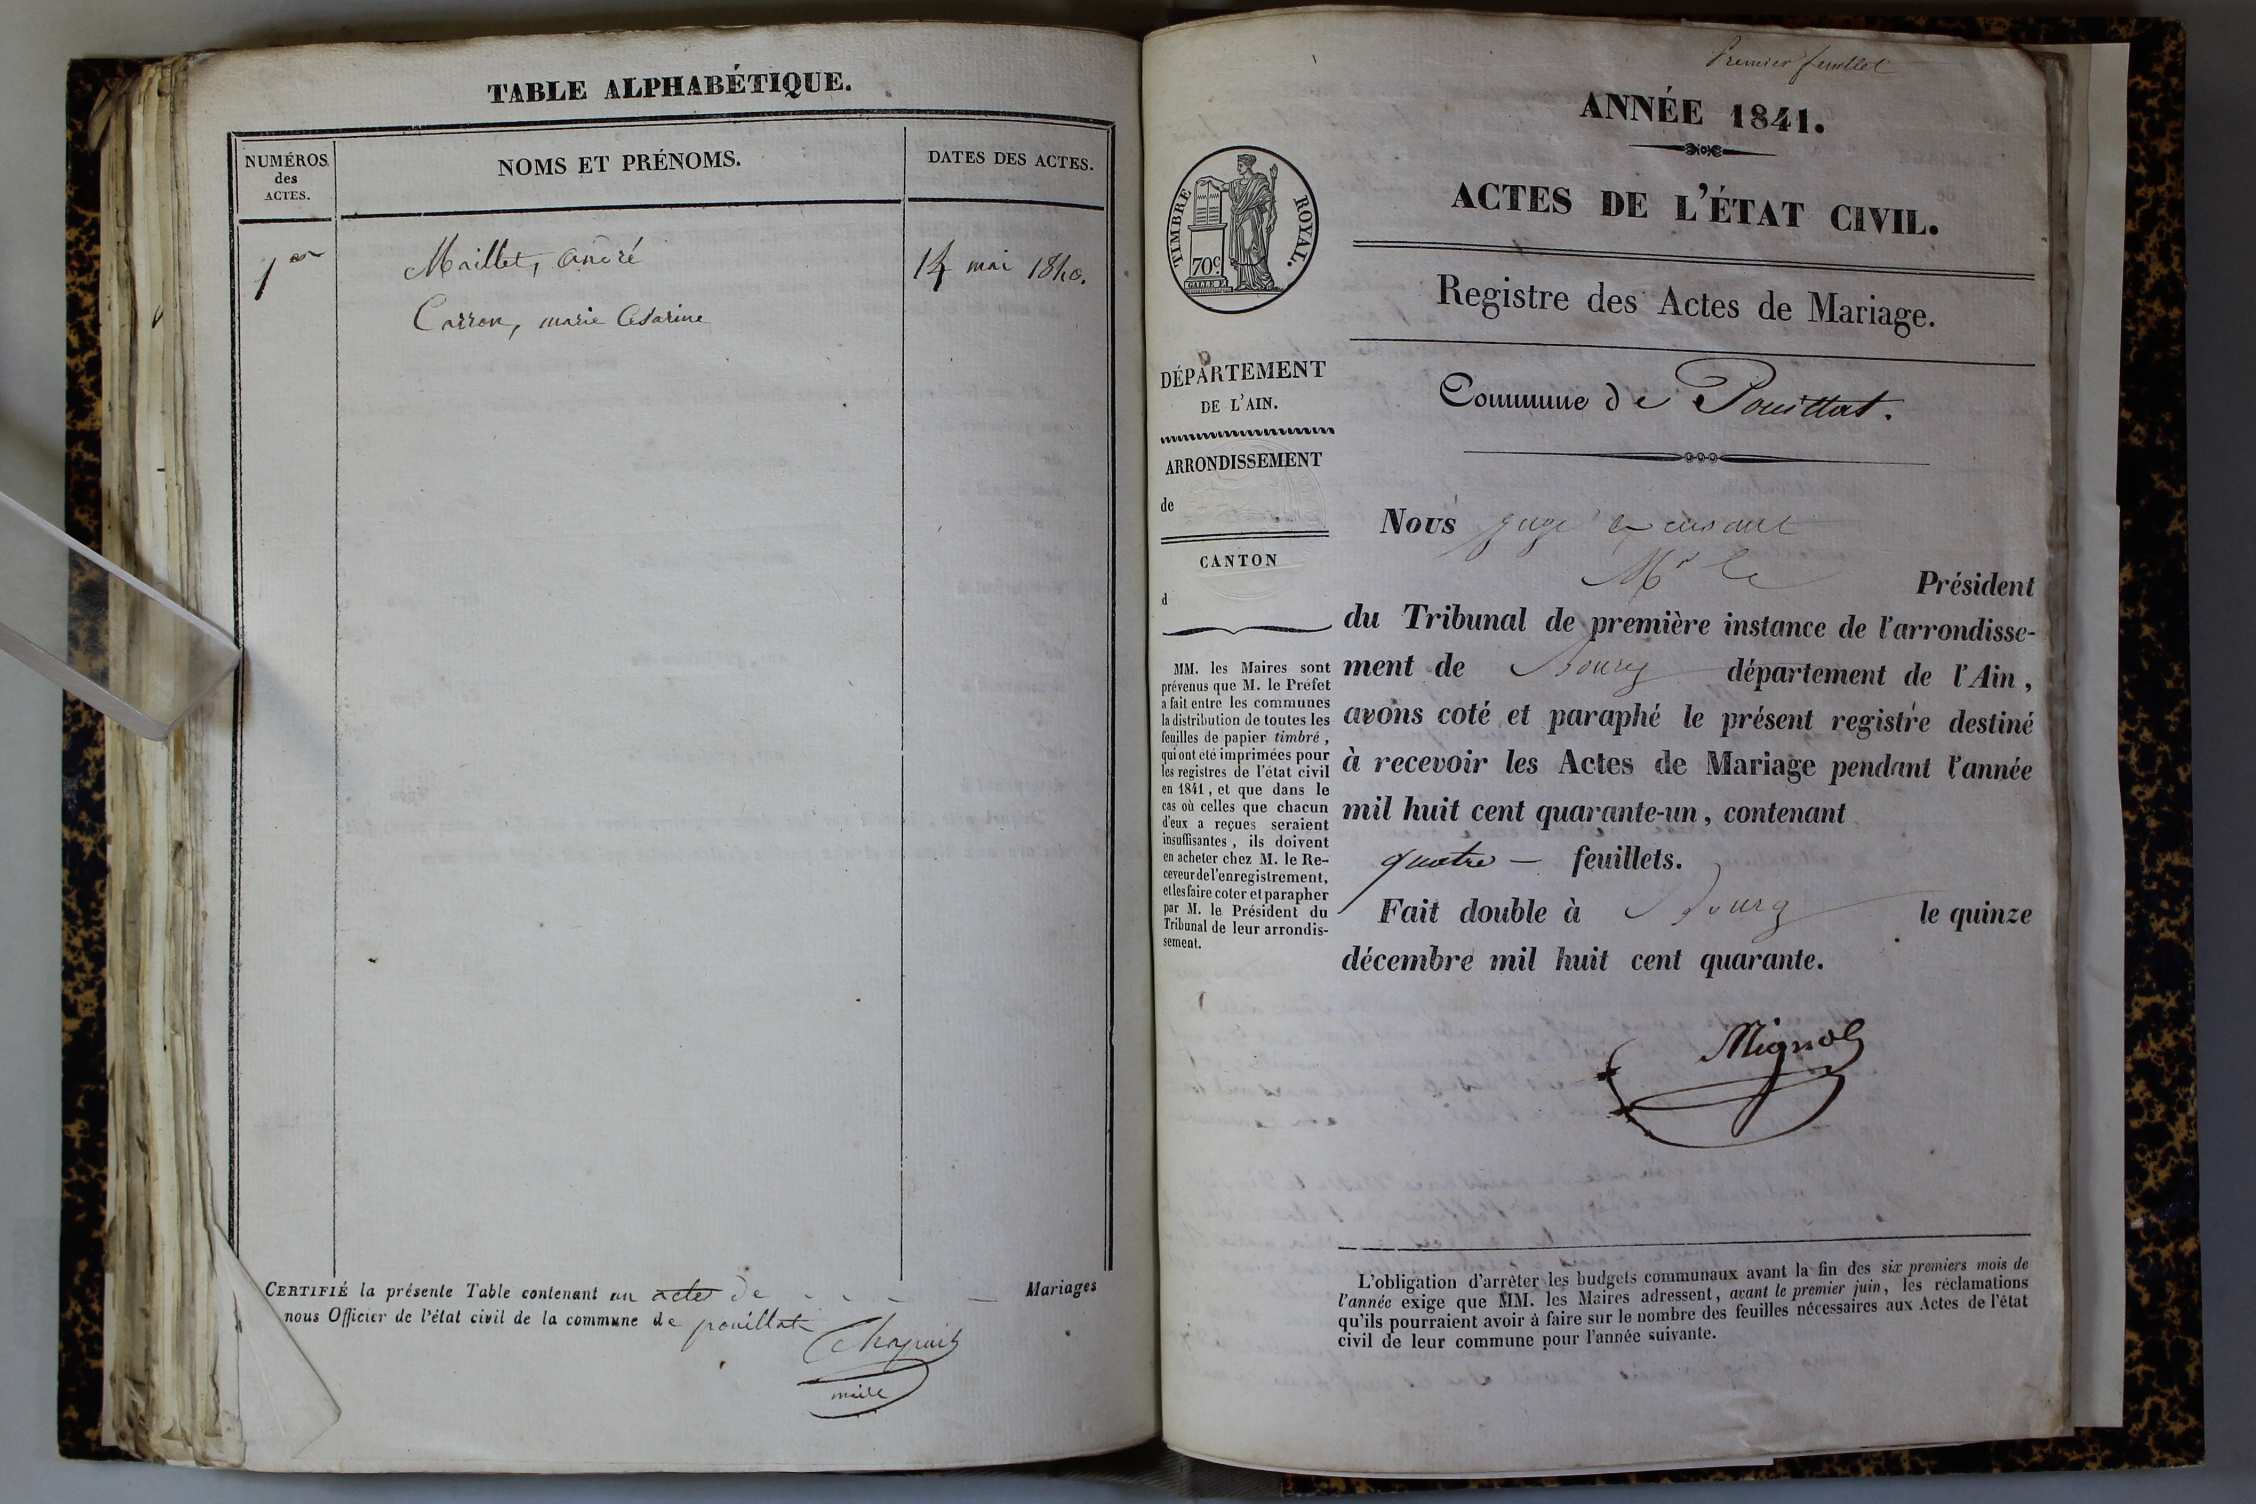 TABLE ALPHABÉTIQUE.
NUMÉROS des ACTES.
NOMS ET PRÉNOMS.
DATES DES ACTES.
1er
Maillet, andré
14 mai 1840.
Carron, marie Césarine
CERTIFIÉ la présente Table contenant un actes de Mariages
nous Officier de l'état civil de la commune de pouillat
Chapuis
maire
Premier feuillet
ANNÉE 1841.
ACTES DE L'ÉTAT CIVIL.
TIMBRE ROYAL.
70c
Registre des Actes de Mariage.
Commune de Pouillat.
DÉPARTEMENT
DE L'AIN.
ARRONDISSEMENT
de
CANTON
d
MM. les Maires sont
prévenus que M. le Préfet
a fait entre les communes
la distribution de toutes les
feuilles de papier timbré,
qui ont été imprimées pour
les registres de l'état civil
en 1841, et que dans le
cas où celles que chacun
d'eux a reçues seraient
insuffisantes, ils doivent
en acheter chez M. le Re-
ceveur de l'enregistrement,
et les faire coter et parapher
par M. le Président du
Tribunal de leur arrondis-
sement.
Nous juge
Mr le Président
du Tribunal de première instance de l'arrondisse-
ment de Bourg département de l'Ain,
avons coté et paraphé le présent registre destiné
à recevoir les Actes de Mariage pendant l'année
mil huit cent quarante-un, contenant
quatre — feuillets.
Fait double à Bourg le quinze
décembre mil huit cent quarante.
L'obligation d'arrêter les budgets communaux avant la fin des six premiers mois de
l'année exige que MM. les Maires adressent, avant le premier juin, les réclamations
qu'ils pourraient avoir à faire sur le nombre des feuilles nécessaires aux Actes de l'état
civil de leur commune pour l'année suivante.